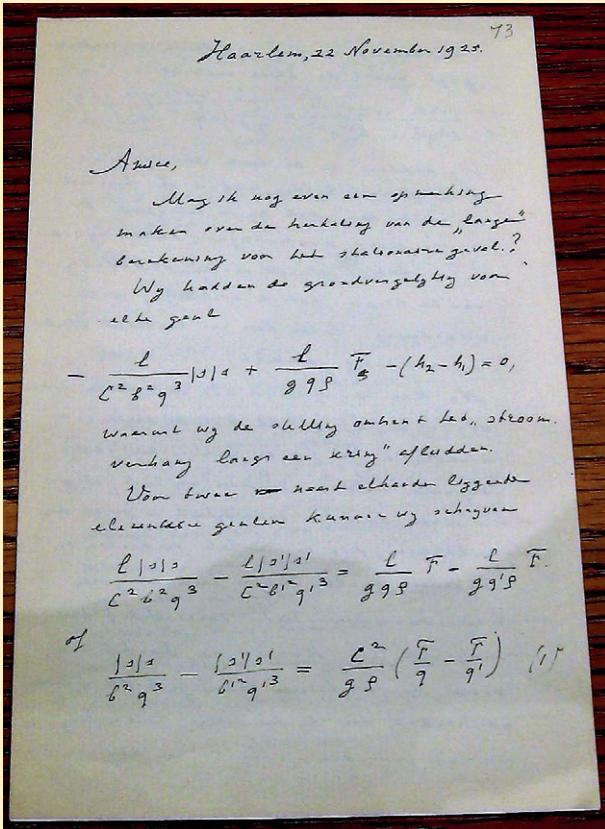 73
Haarlem, 22 November 1925.
Amice,
Mag ik nog even een opmerking
maken over de herhaling van de „lange”
berekening voor het stationaire geval?
Wy hadden de grondvergelyking voor
elke geul
- l / (C² b² q³) |s|s + l / (g q ρ) F̅ - (h₂ - h₁) = 0,
waaruit wy de stelling omtrent het „stroom-
verhang langs een kring” afleidden.
Voor twee naast elkander liggende
elementaire geulen kunnen wy schryven
l|s|s / (C² b² q³) - l|s'|s' / (C² b'² q'³) = l / (g q ρ) F̅ - l / (g q' ρ) F̅.
of
|s|s / (b² q³) - |s'|s' / (b'² q'³) = C² / (g ρ) (F̅ / q - F̅ / q') (1)